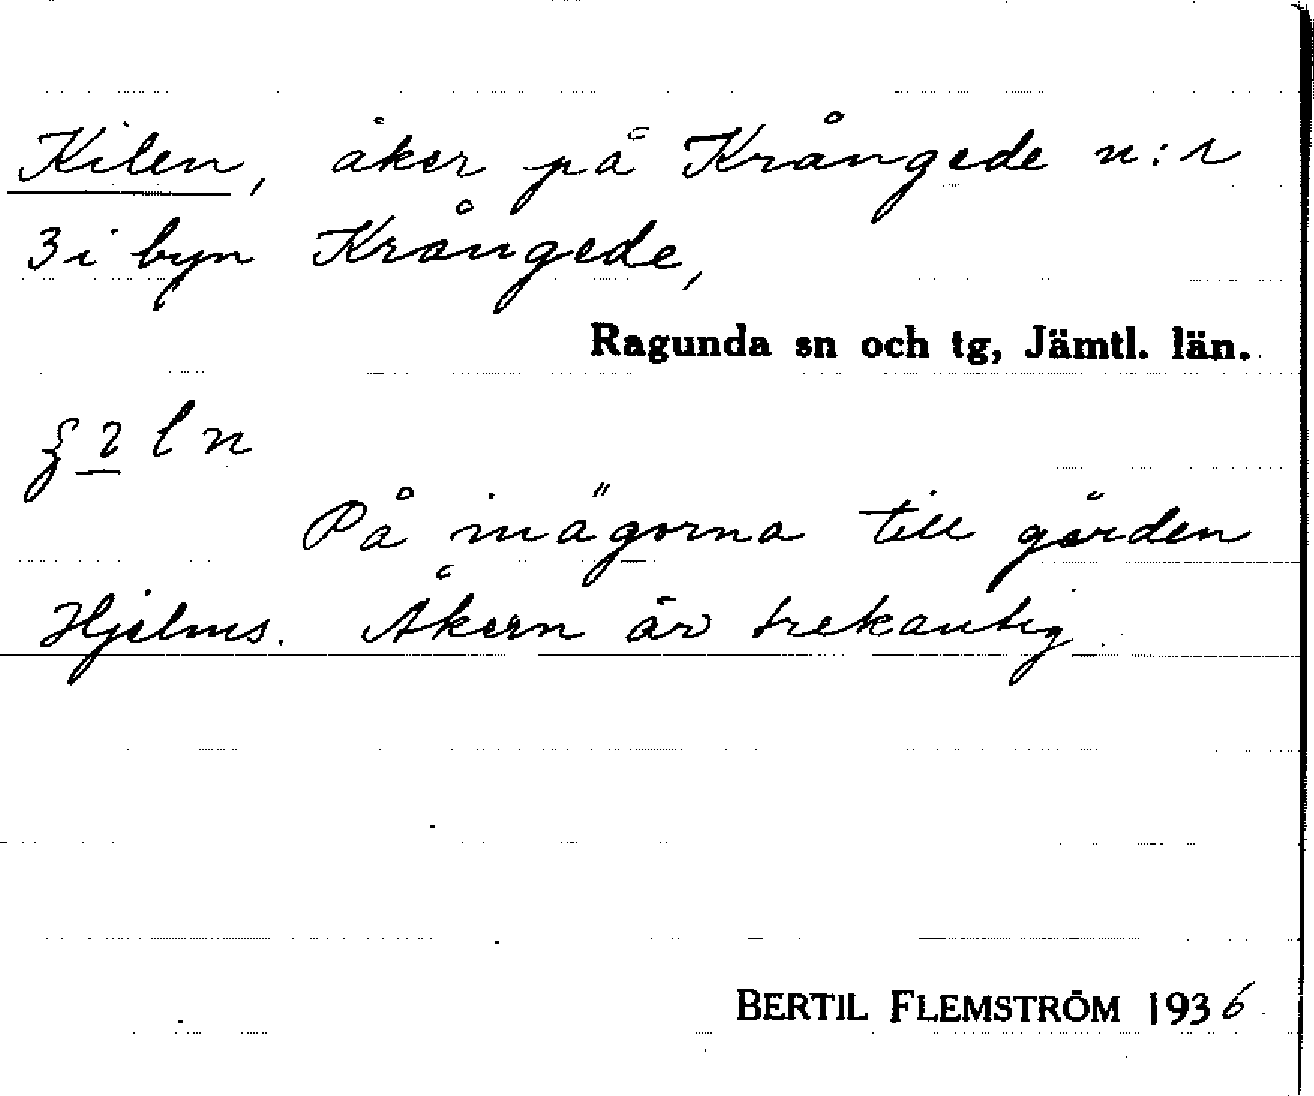 Kilen, åker på Krångede n:r
3 i byn Krångede,
Ragunda sn och tg, Jämtl. län.
På inägorna till gården
Hjelms. Åkern är trekantig.
BERTIL FLEMSTRÖM 1936